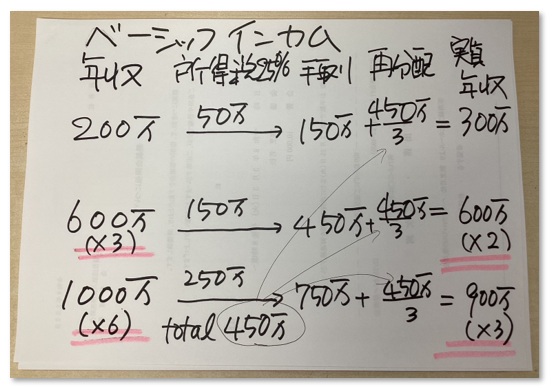 ベーシックインカム
年収 所得税25% 手取り 再分配 実質年収
200万 50万 150万 + 450万/3 = 300万
600万 150万 450万 + 450万/3 = 600万
(×3) (×2)
1000万 250万 750万 + 450万/3 = 900万
(×6) total 450万 (×3)